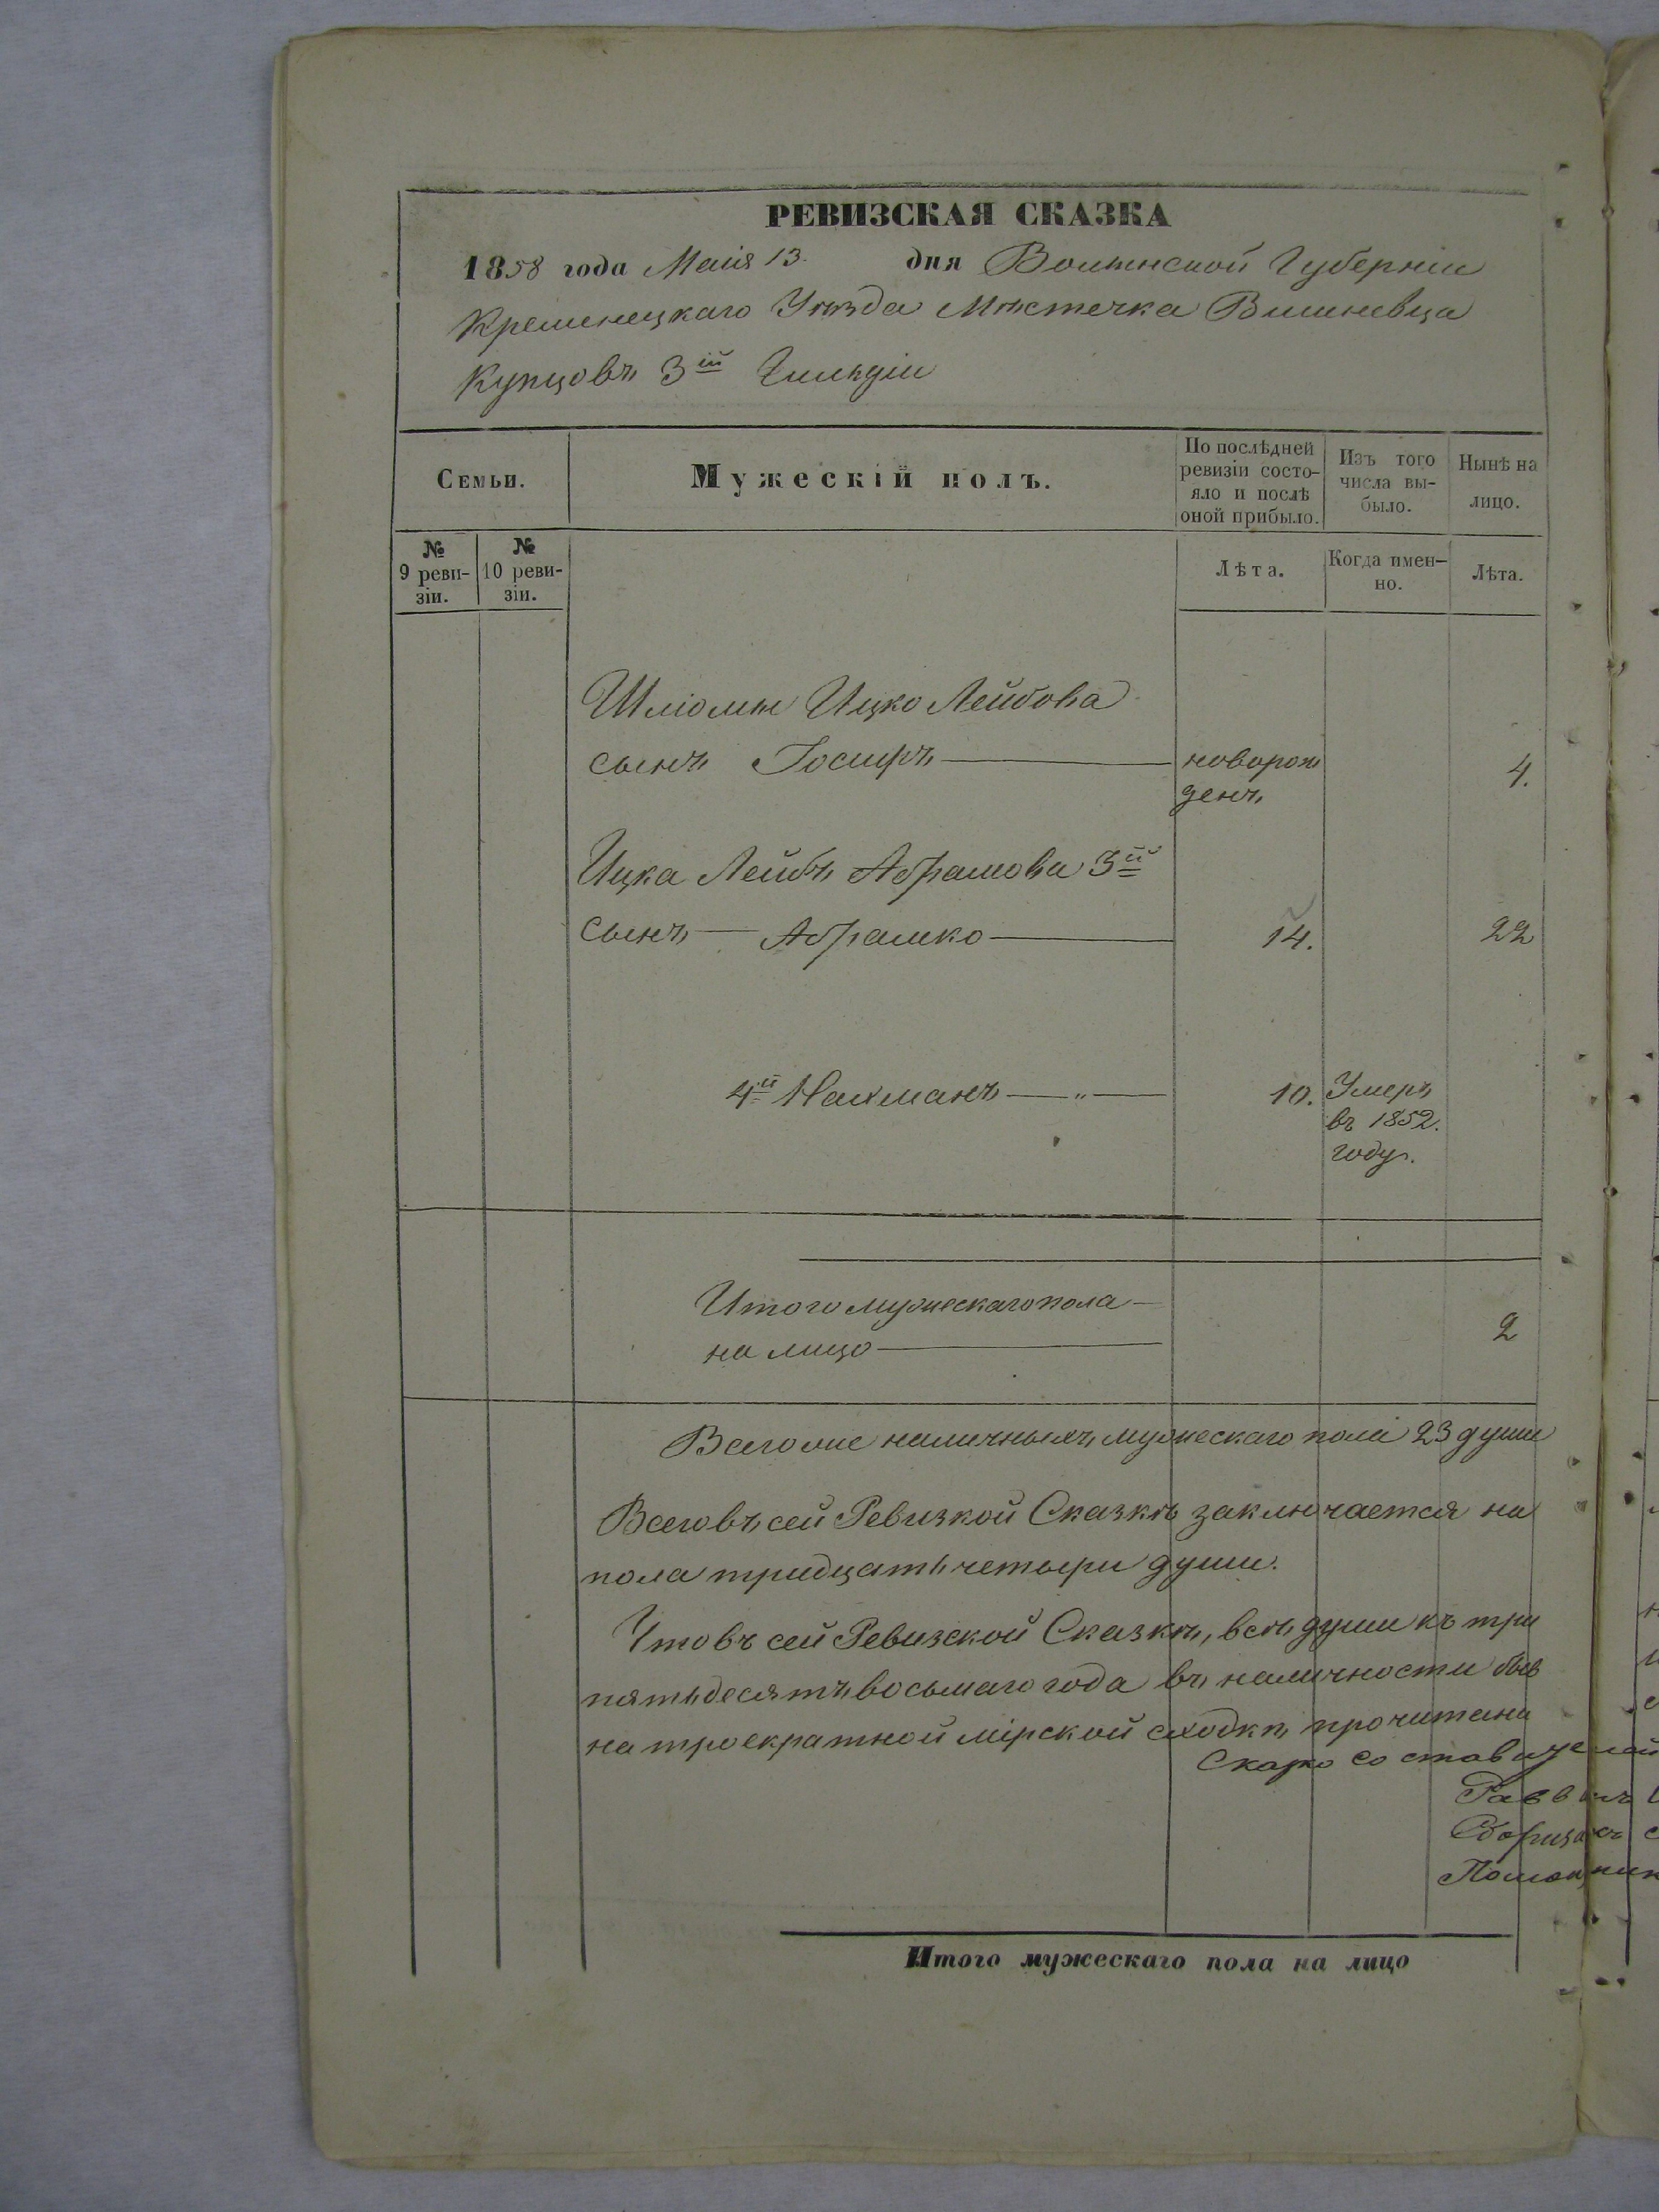 РЕВИЗСКАЯ СКАЗКА
1858 года Маія 13. дня Волынской Губерніи
Кременецкаго Уѣзда Мѣстечка Вишневца
Купцовъ 3ій Гильдіи
Семьи.
Мужескій полъ.
По послѣдней
ревизіи состо-
яло и послѣ
оной прибыло.
Изъ того
числа вы-
было.
Нынѣ на
лицо.
№
9 реви-
зіи.
№
10 реви-
зіи.
Лѣта.
Когда имен-
но.
Лѣта.
Шліомы Ицко Лейбова
сынъ Іосифъ новорож 4.
денъ
Ицка Лейбъ Абрамова 3й
сынъ Абрамко 14. 22
4й Нахманъ — „ — 10. Умеръ
въ 1852.
году.
Итого мужескаго пола
на лицо 2
Всего же наличныхъ мужескаго пола 23 души
Всего въ сей Ревизкой Сказкѣ заключается на
пола тридцать четыри души.
Что въ сей Ревизской Сказкѣ, всѣ души къ три
пятьдесятъ восьмаго года въ наличности быв
на троекратной мірской сходкѣ прочитана
Итого мужескаго пола на лицо